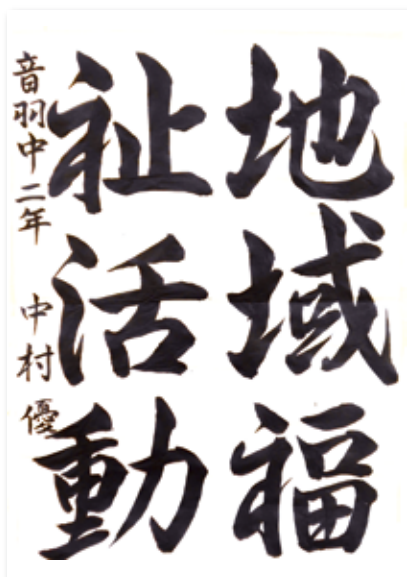 地域福
祉活動
音羽中二年 中村 優